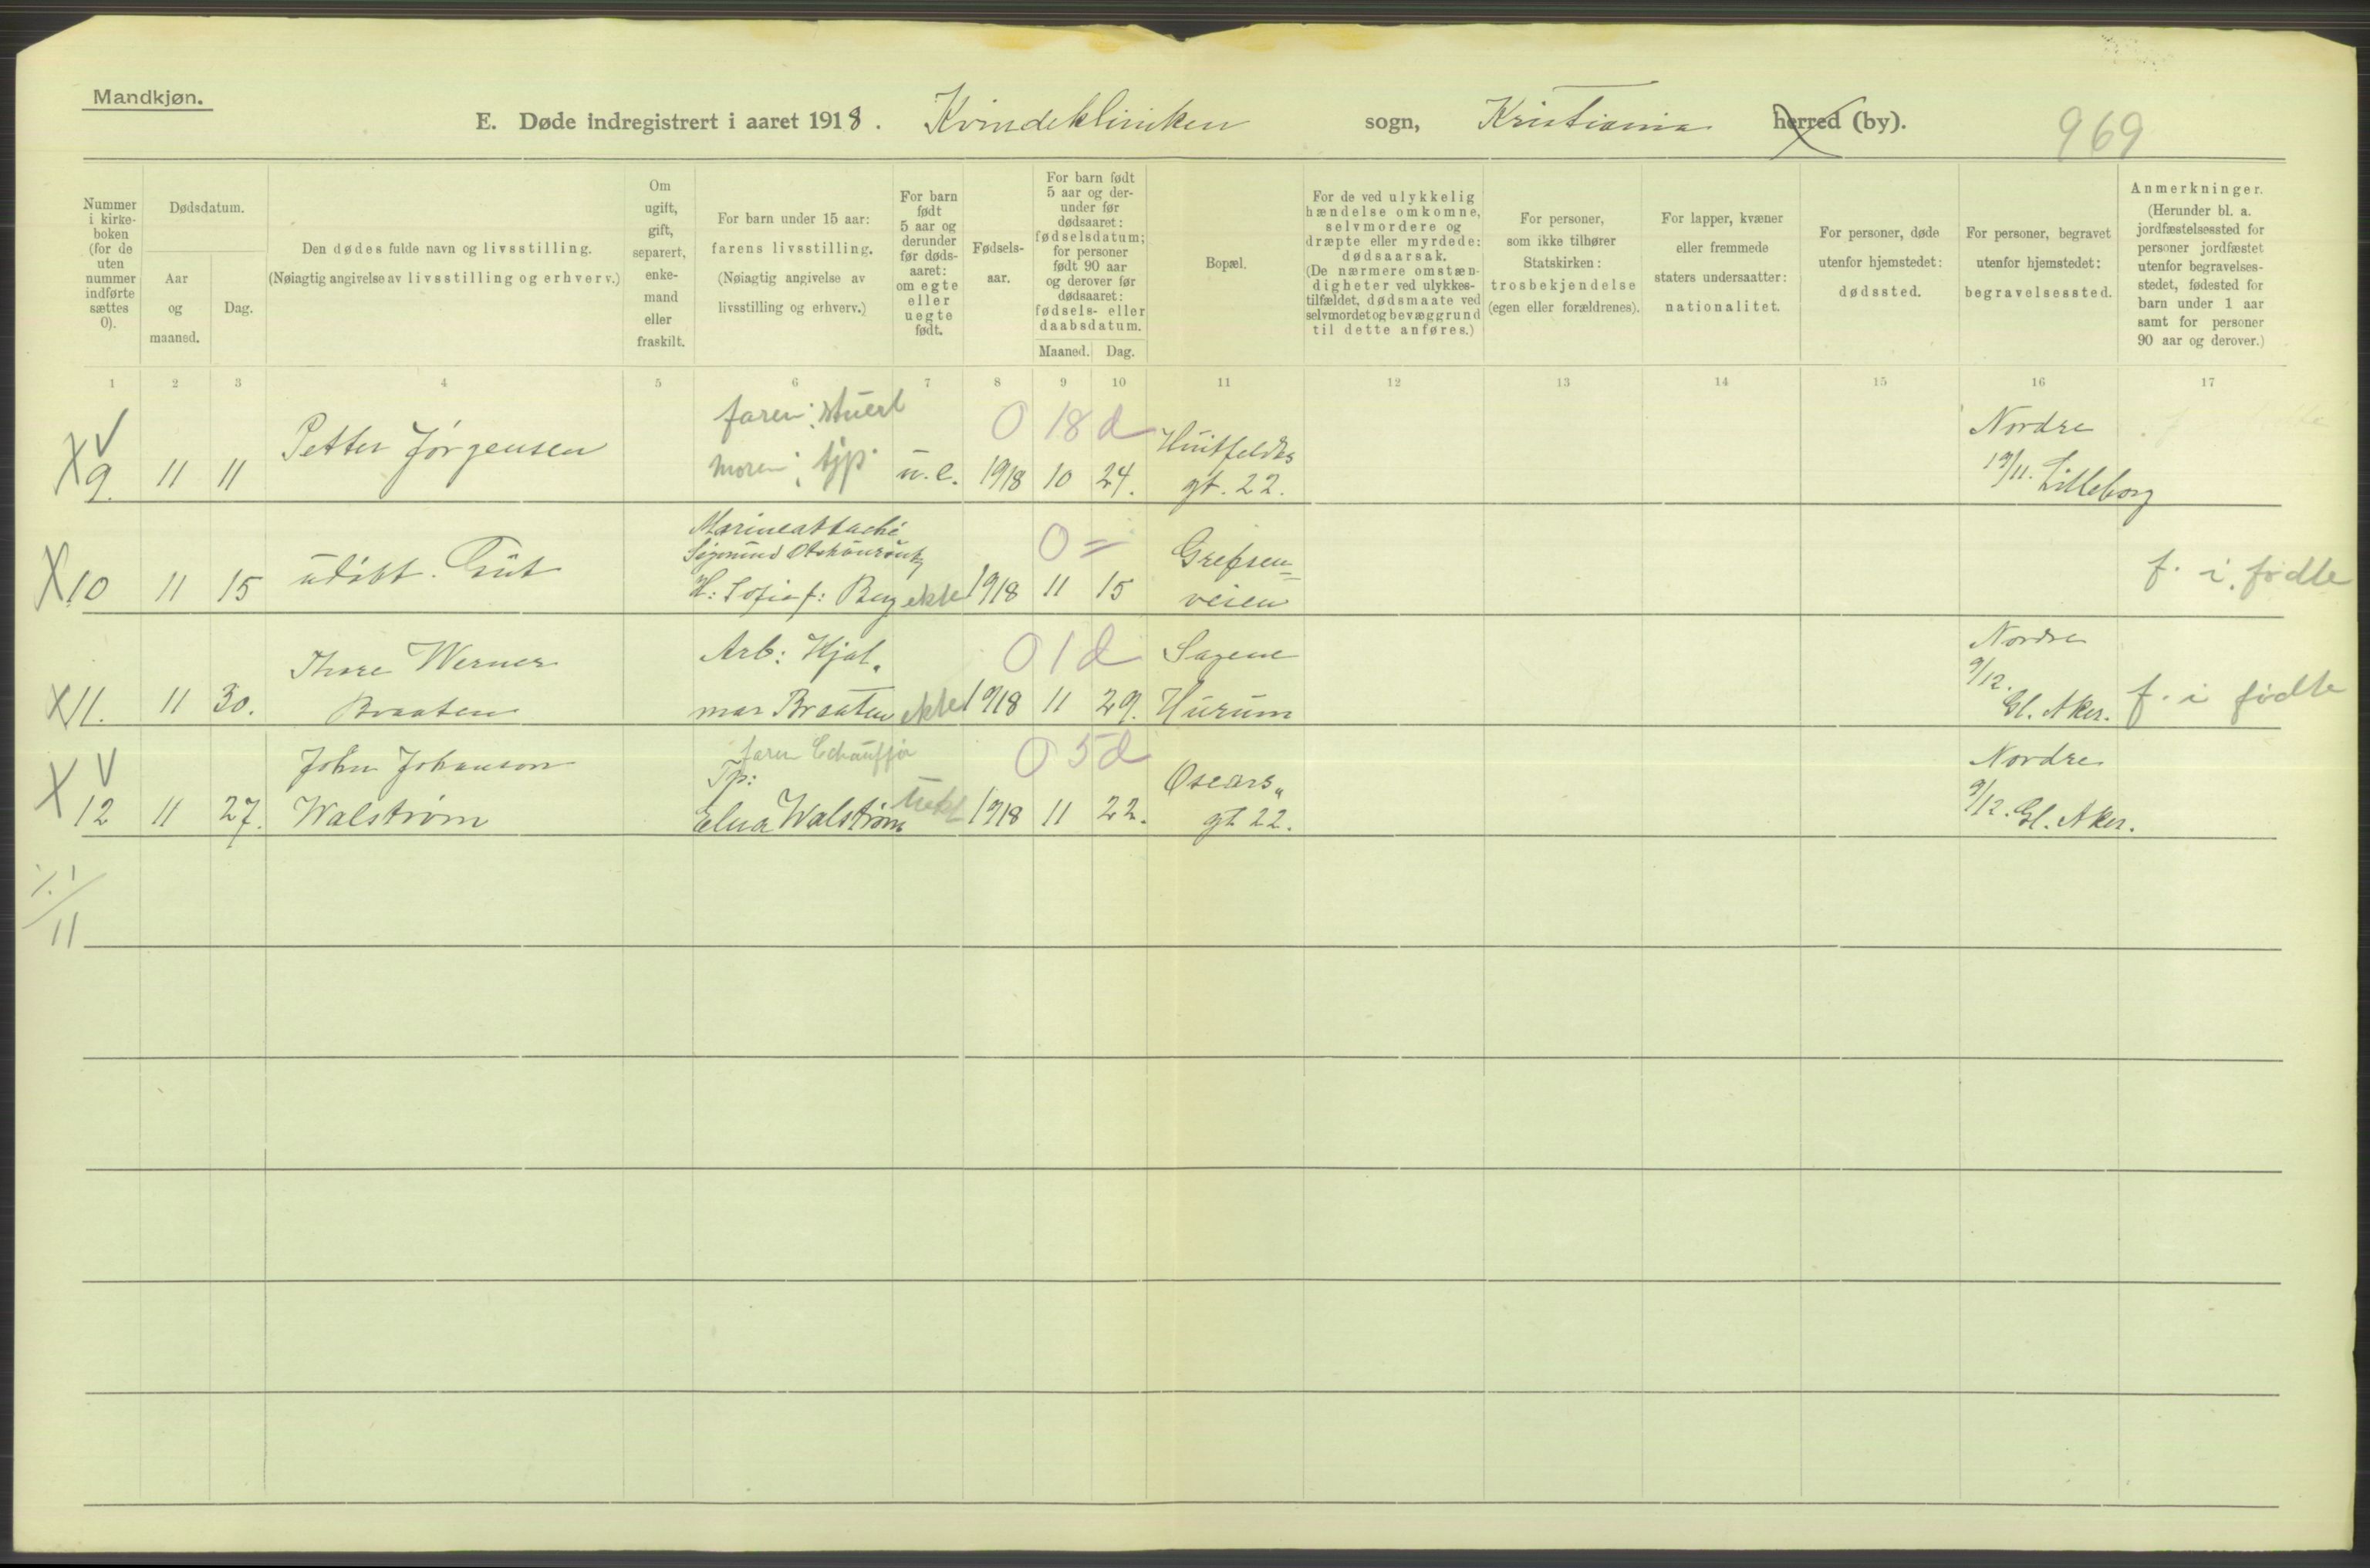 Mandkjøn.
E. Døde indregistrert i aaret 1918. Kvindekliniken sogn, Kristiania herred (by). 969
Nummer i kirke-boken (for de uten nummer indførte sættes 0).
Dødsdatum.
Aar og maaned.
Dag.
Den dødes fulde navn og livsstilling.
(Nøiagtig angivelse av livsstilling og erhverv.)
Om ugift, gift, separert, enke-mand eller fraskilt.
For barn under 15 aar:
farens livsstilling.
(Nøiagtig angivelse av
livsstilling og erhverv.)
For barn født 5 aar og derunder før døds-aaret: om egte eller uegte født.
Fødsels-aar.
For barn født 5 aar og der-under før dødsaaret: fødselsdatum; for personer født 90 aar og derover før dødsaaret: fødsels- eller daabsdatum.
Maaned. Dag.
Bopæl.
For de ved ulykkelig hændelse omkomne, selvmordere og dræpte eller myrdede: dødsaarsak.
(De nærmere omstæn-digheter ved ulykkes-tilfældet, dødsmaate ved selvmordet og bevæggrund til dette anføres.)
For personer, som ikke tilhører Statskirken: trosbekjendelse (egen eller forældrenes).
For lapper, kvæner eller fremmede staters undersaatter: nationalitet.
For personer, døde utenfor hjemstedet: dødssted.
For personer, begravet utenfor hjemstedet: begravelsessted.
Anmerkninger.
(Herunder bl. a. jordfæstelsessted for personer jordfæstet utenfor begravelses-stedet, fødested for barn under 1 aar samt for personer 90 aar og derover.)
1 2 3 4 5 6 7 8 9 10 11 12 13 14 15 16 17
faren: stuert
0 18 d
Nordre
X V
Petter Jørgensen
Huitfeldts
9. 11 11
moren: tjp.
u. e. 1918 10 24.
gt. 22.
19/11. Lilleborg
Marineattaché
0 =
Grefsen-
X10 11 15 udøbt. Gut
H: Sofie f: Berg ekte 1918 11 15
veien
f. i. fødte
Thore Werner
Arb: Hjal-
0 1 d
Sagene
Nordre
9/12.
X11. 11 30. Braaten
mar Braaten ekte 1918 11 29. Hurum
Gl. Aker. f. i fødte
X V
John Johanson
faren Chauffør
0 5 d
Nordre
Tp:
Oscars
12 11 27. Walstrøm
Elna Walstrøm uekt 1918 11 22.
gt 22.
9/12. Gl. Aker.
11